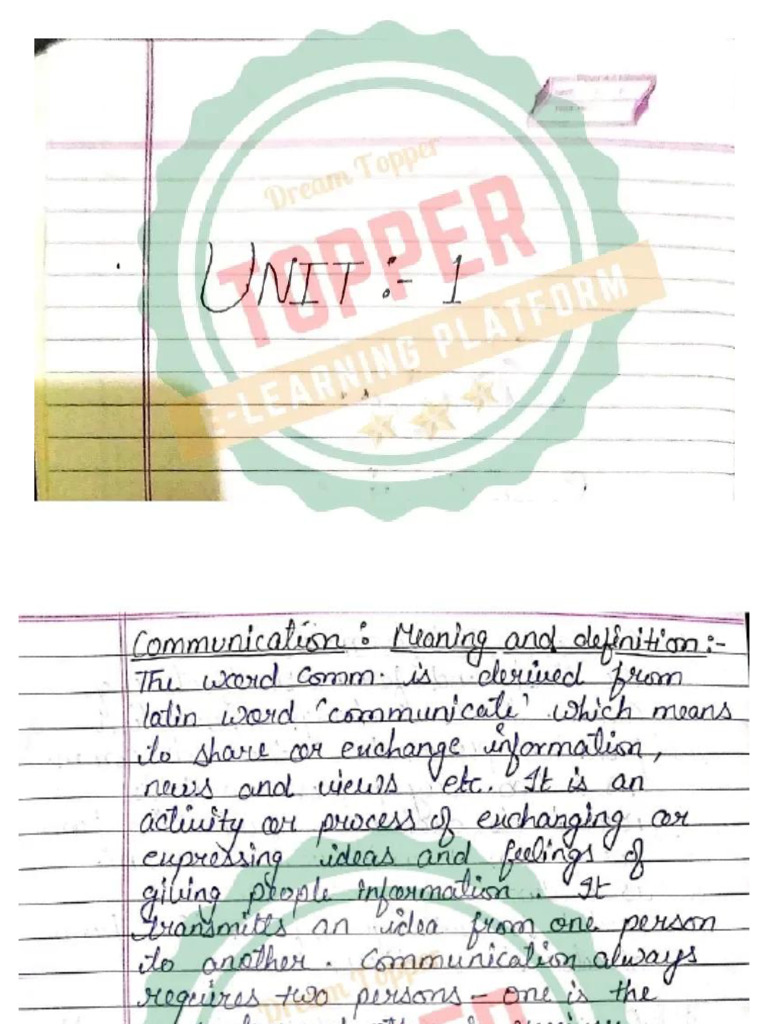 Dream Topper
TOPPER
UNIT :- 1
E-LEARNING PLATFORM
Communication : Meaning and definition:-
The word comm. is derived from
latin word 'communicate' which means
to share or exchange information,
news and views etc. It is an
activity or process of exchanging or
expressing ideas and feelings of
giving people information. It
transmitts an idea from one person
to another. Communication always
requires two persons – one is the
Dream Topper